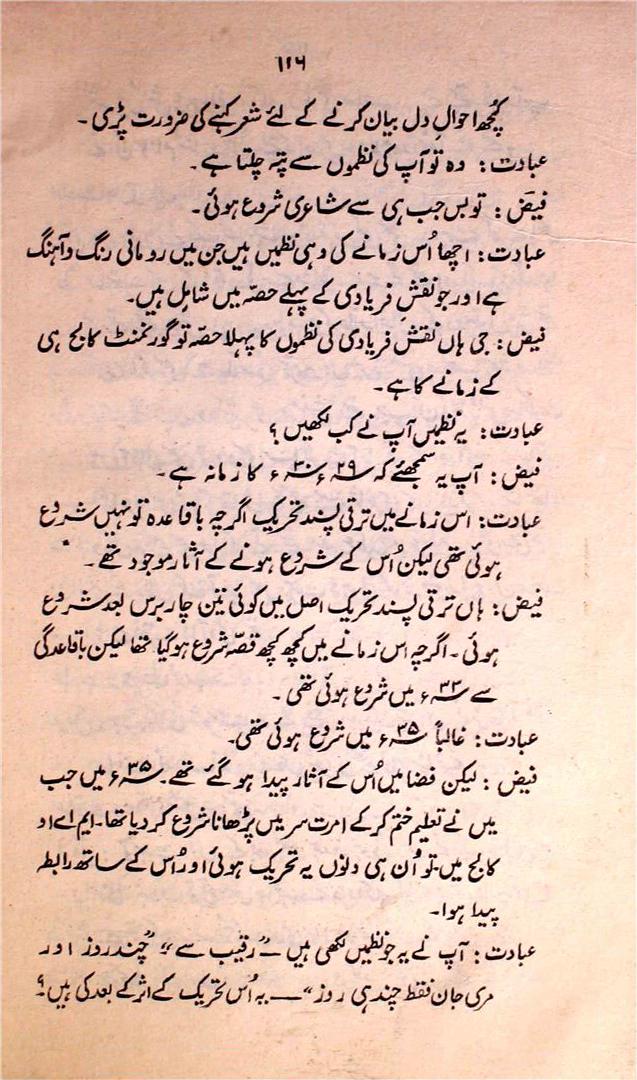 ۱۱۶
کُچھ احوالِ دل بیان کرنے کے لئے شعر کہنے کی ضرورت پڑی۔
عبادت: وہ تو آپ کی نظموں سے پتہ چلتا ہے۔
فیض: تو بس جب ہی سے شاعری شروع ہوئی۔
عبادت: اچھا اُس زمانے کی وہی نظمیں ہیں جن میں رومانی رنگ و آہنگ
ہے اور جو نقشِ فریادی کے پہلے حصّہ میں شامل ہیں۔
فیض: جی ہاں نقشِ فریادی کی نظموں کا پہلا حصّہ تو گورنمنٹ کالج ہی
کے زمانے کا ہے۔
عبادت: یہ نظمیں آپ نے کب لکھیں؟
فیض: آپ یہ سمجھئے کہ ۲۹ء ۳۰ء کا زمانہ ہے۔
عبادت: اس زمانے میں ترقی پسند تحریک اگرچہ باقاعدہ تو نہیں شروع
ہوئی تھی لیکن اُس کے شروع ہونے کے آثار موجود تھے۔
فیض: ہاں ترقی پسند تحریک اصل میں کوئی تین چار برس بعد شروع
ہوئی۔ اگرچہ اس زمانے میں کچھ کچھ قصّہ شروع ہوگیا تھا لیکن باقاعدگی
سے ۳۳ء میں شروع ہوئی تھی۔
عبادت: غالباً ۳۵ء میں شروع ہوئی تھی۔
فیض: لیکن فضا میں اُس کے آثار پیدا ہو گئے تھے۔ ۳۵ء میں جب
میں نے تعلیم ختم کر کے امرت سر میں پڑھانا شروع کر دیا تھا۔ ایم اے او
کالج میں۔ تو اُن ہی دنوں یہ تحریک ہوئی اور اُس کے ساتھ رابطہ
پیدا ہوا۔
عبادت: آپ نے یہ جو نظمیں لکھی ہیں — "رقیب سے" "چند روز اور
مری جان فقط چند ہی روز" — یہ اُس تحریک کے اثر کے بعد کی ہیں؟